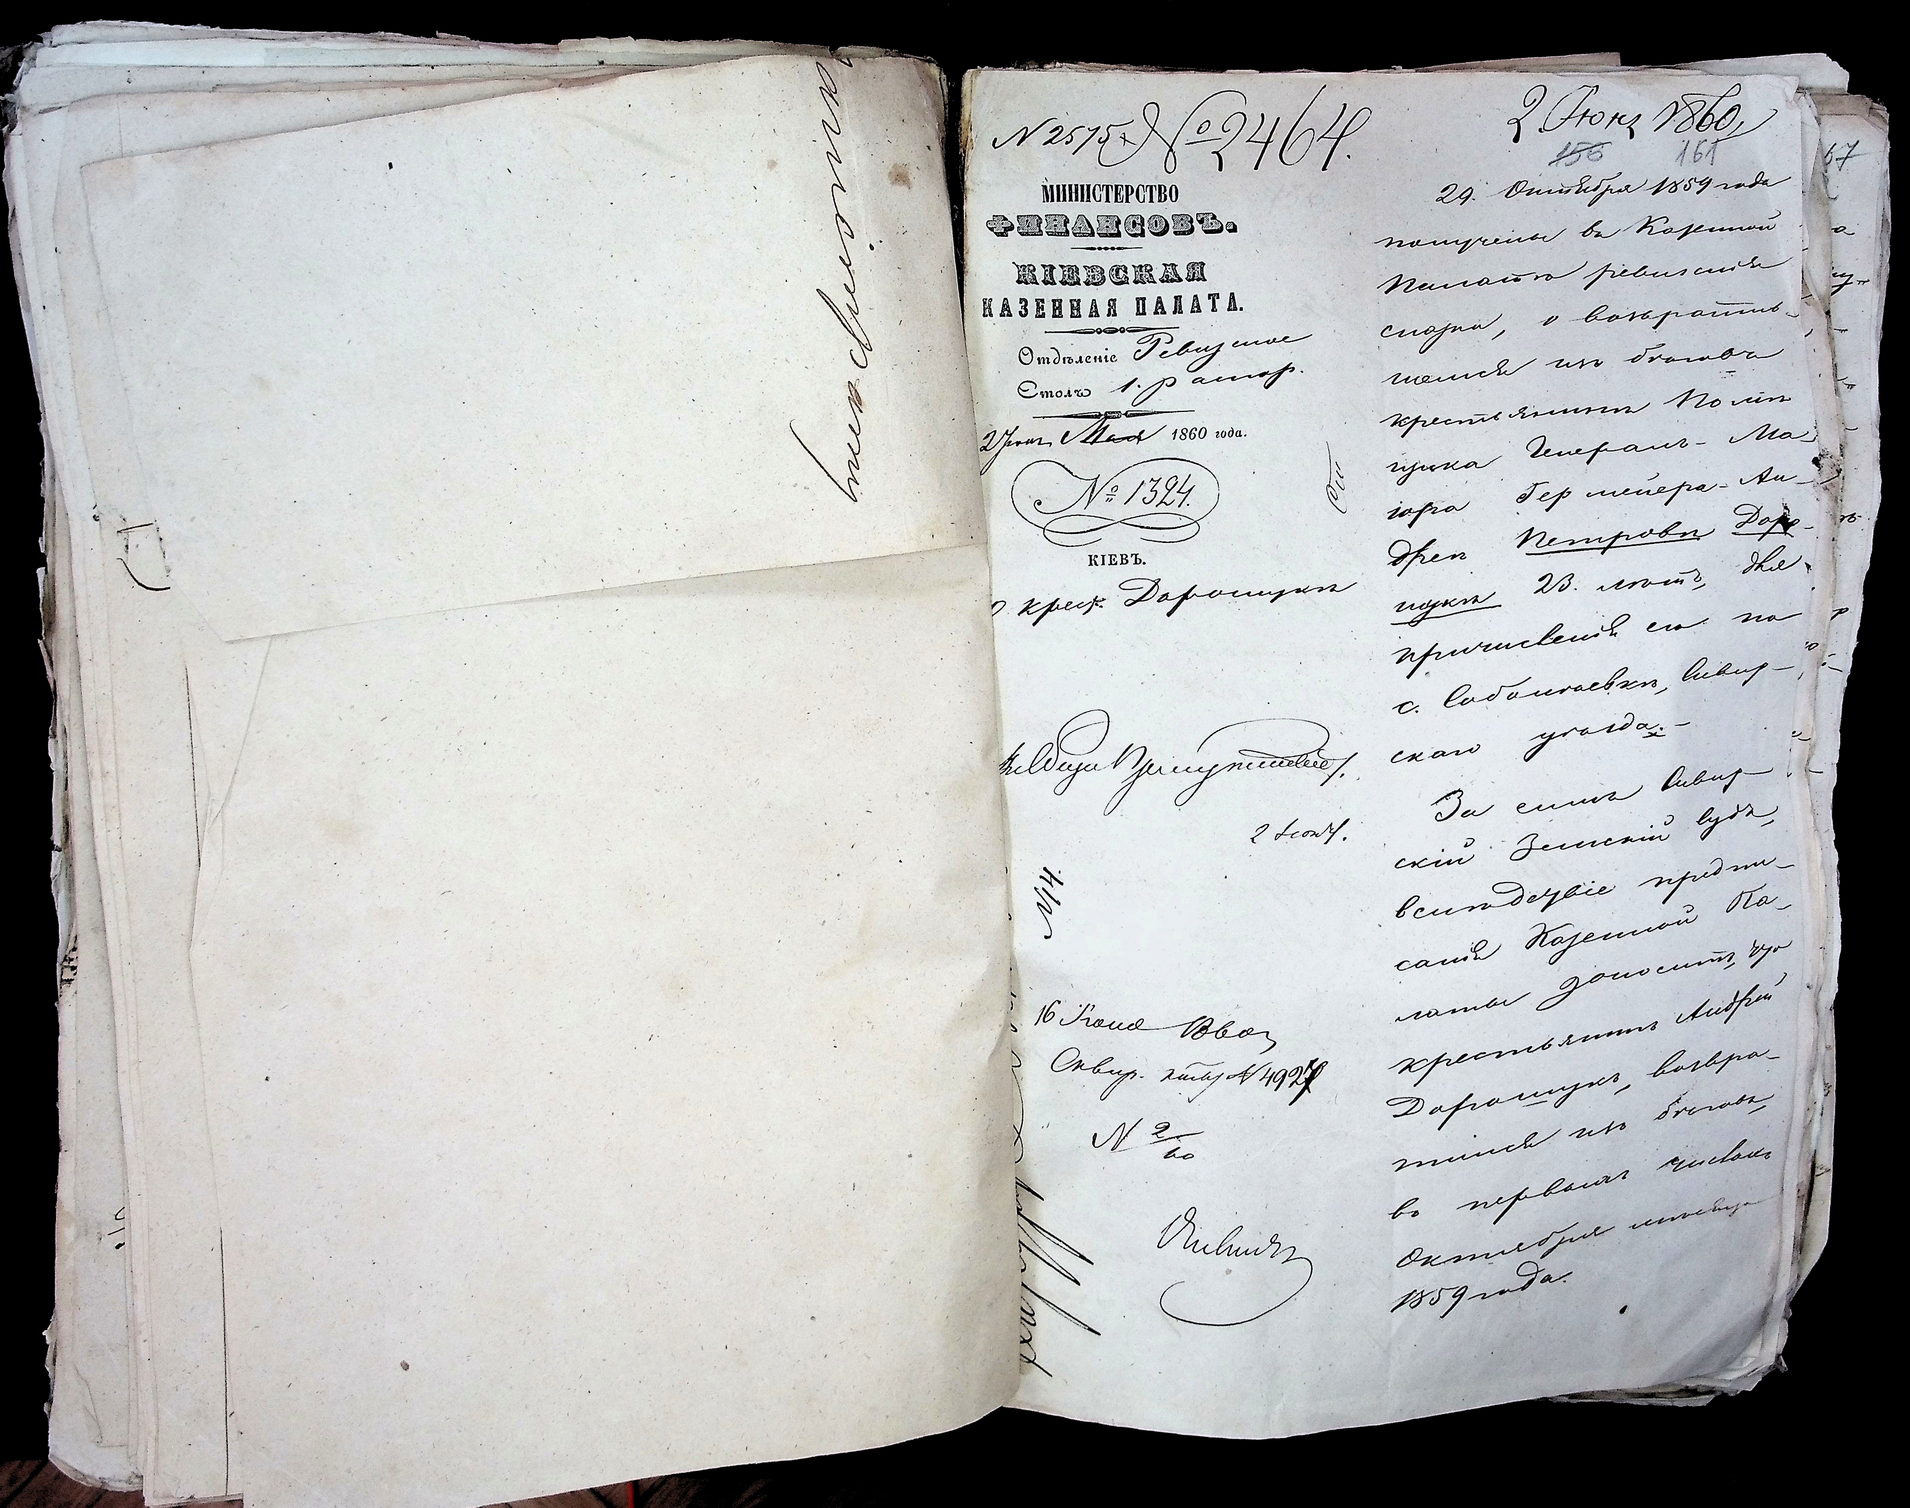 N 2575
№ 2464.
2 Юня 1860
156 161
МИНИСТЕРСТВО
ФИНАНСОВЪ.
КІЕВСКАЯ
КАЗЕННАЯ ПАЛАТА.
Отдѣленіе Ревизское
Столъ 1.
2 Юня Мая 1860 года.
№ 1324.
КІЕВЪ.
крест. Дорощукъ
2 Юня
N 14.
16 Юня
Сквир. N 4927
N 2/60
29. Октября 1859 года
получены въ Казенной
Палатѣ ревизскія
сказки, о возратив-
шемся изъ бѣговъ
крестьянинѣ Помѣ
щика Генералъ-Ма-
іора Гермейера-Ан-
дреѣ Петровѣ Доро-
щукѣ 23. лѣтъ, для
причисленія его по
с. Соболѣевкѣ, Сквир-
скаго уѣзда.-
За симъ Сквир-
скій Земскій Судъ,
вслѣдствіе предпи-
санія Казенной Па-
латы доноситъ, что
крестьянинъ Андрей
Дорощукъ, возвра-
тился изъ бѣговъ,
въ первыхъ числахъ
Октября мѣсяца
1859 года.
57